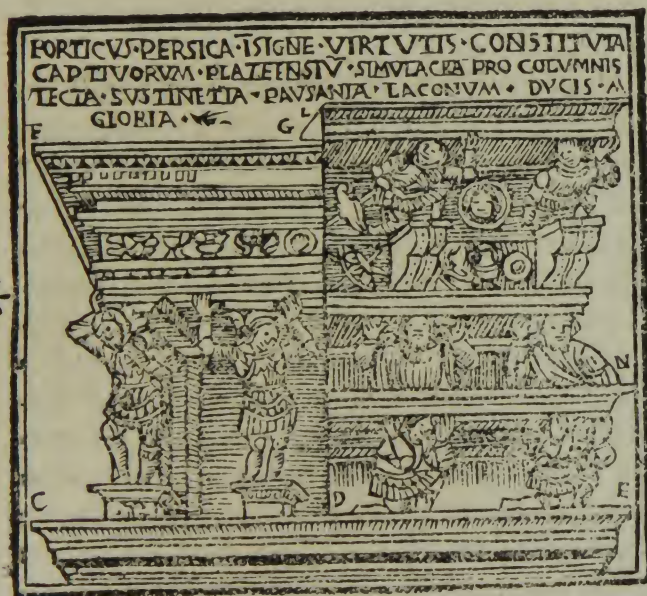 PORTICVS·PERSICA·ĪSIGNE·VIRTVTIS·CONSTITVTA
CAPTIVORVM·PLATEENSIV̄·SIMVLACRA PRO COLVMNIS
TECTA·SVSTINETIA·PAVSANIA·LACONVM·DVCIS·M
GLORIA·
F G L
N
C D E